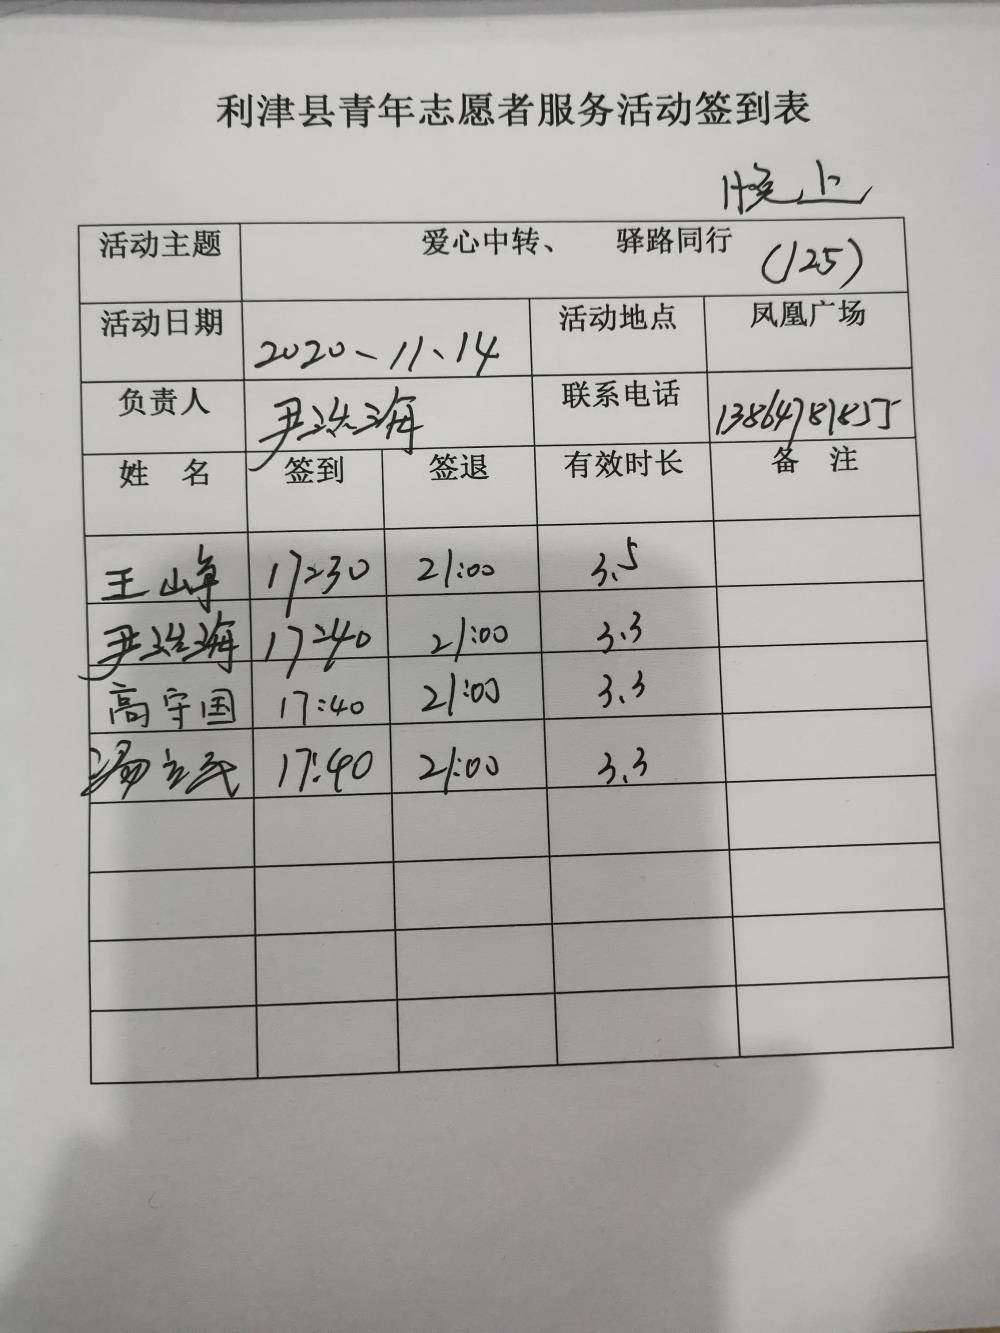 利津县青年志愿者服务活动签到表
晚上
活动主题 爱心中转、 驿路同行 (125)
活动日期 2020、11、14 活动地点 凤凰广场
负责人 尹洪海 联系电话
姓名 签到 签退 有效时长 备注
王山 17:30 21:00 3.5
尹洪海 17:40 21:00 3.3
高守国 17:40 21:00 3.3
汤立民 17:40 21:00 3.3